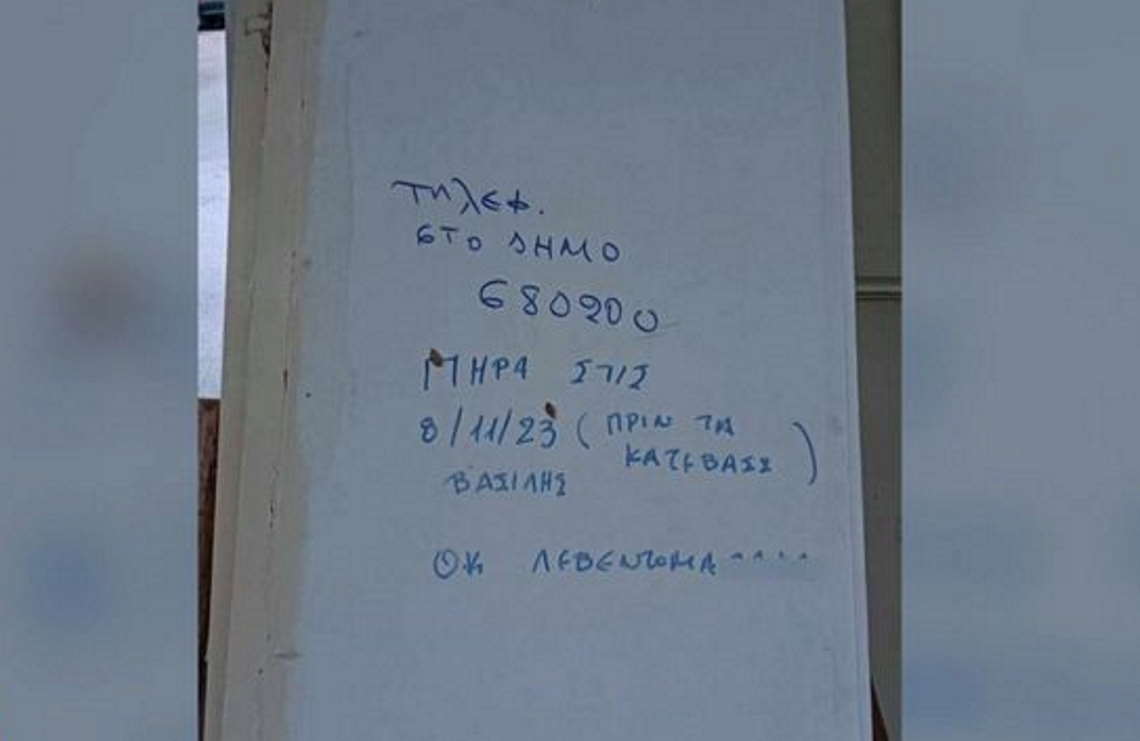 ΤΗΛΕΦ.
ΣΤΟ ΔΗΜΟ
680200
ΠΗΡΑ ΣΤΙΣ
8/11/23 (ΠΡΙΝ ΤΑ
ΚΑΤΕΒΑΣΩ)
ΒΑΣΙΛΗΣ
ΟΚ ΛΕΒΕΝΤΟΜΑ....